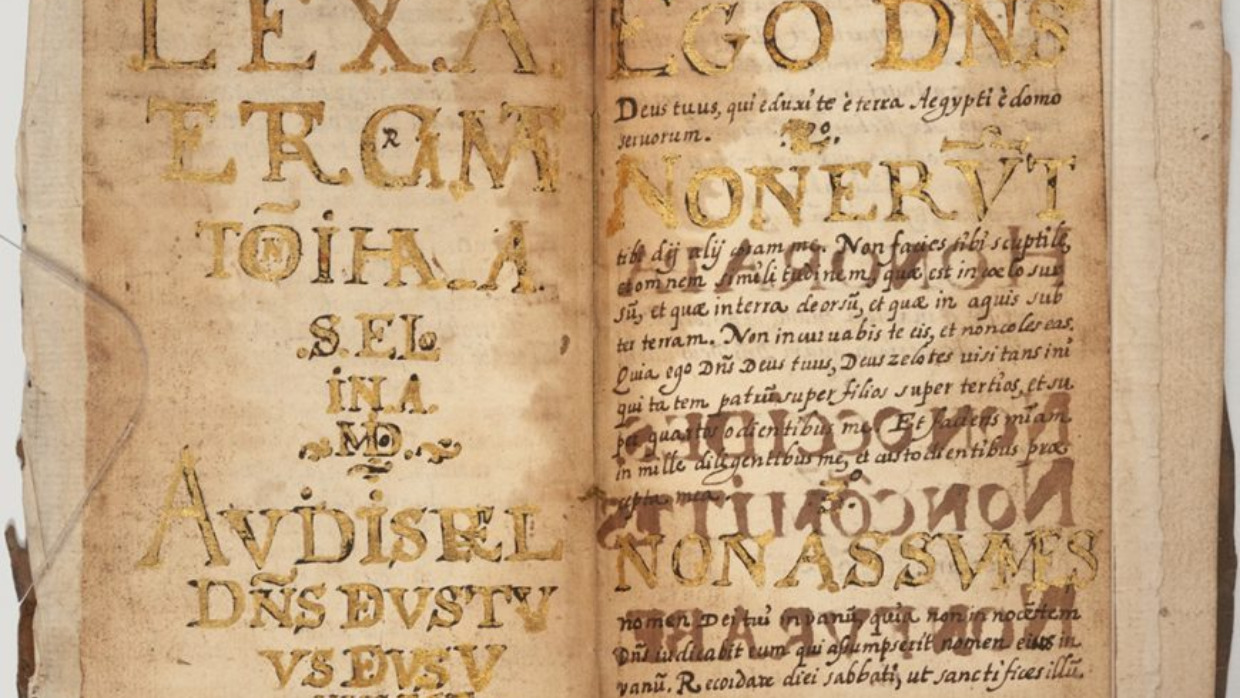 LEX.A.
ETERÑA M
TÕIHA A.
.S.EL
IN.A.
MD.
AVDISREL
DÑS DEVSTV
VS DEVSV
EGO DÑS
Deus tuus, qui eduxi te è terra Aegypti è domo
seruorum.
2º.
NON ERṼT
tibi dij alij coram me. Non facies tibi sculptile,
et omnem similitudinem, quæ est in cœlo sur
sũ, et quæ in terra deorsũ, et quæ in aquis sub
ter terram. Non incuruabis te eis, et non coles eas.
Quia ego Dñs Deus tuus, Deus zelotes visitans ini
quitatem patrũ super filios super tertios, et su
per quartos odientibus me. Et faciens mĩam
in mille diligentibus me, et custodientibus præ
cepta mea.
3º.
NON ASSVMES
nomen Dei tui in vanũ, quia non innocẽtem
Dñs iudicabit eum qui assumpserit nomen eius in
vanũ. Recordare diei sabbati, ut sanctifices illũ.